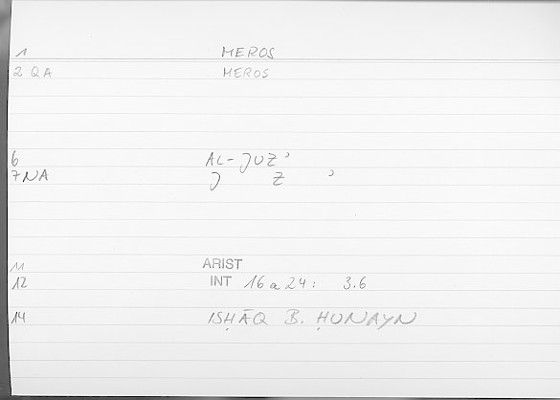 1 MEROS
2 QA MEROS
6 AL-JUZʾ
7 NA J Z ʾ
11 ARIST
12 INT 16a24: 3.6
14 ISḤĀQ B. ḤUNAYN